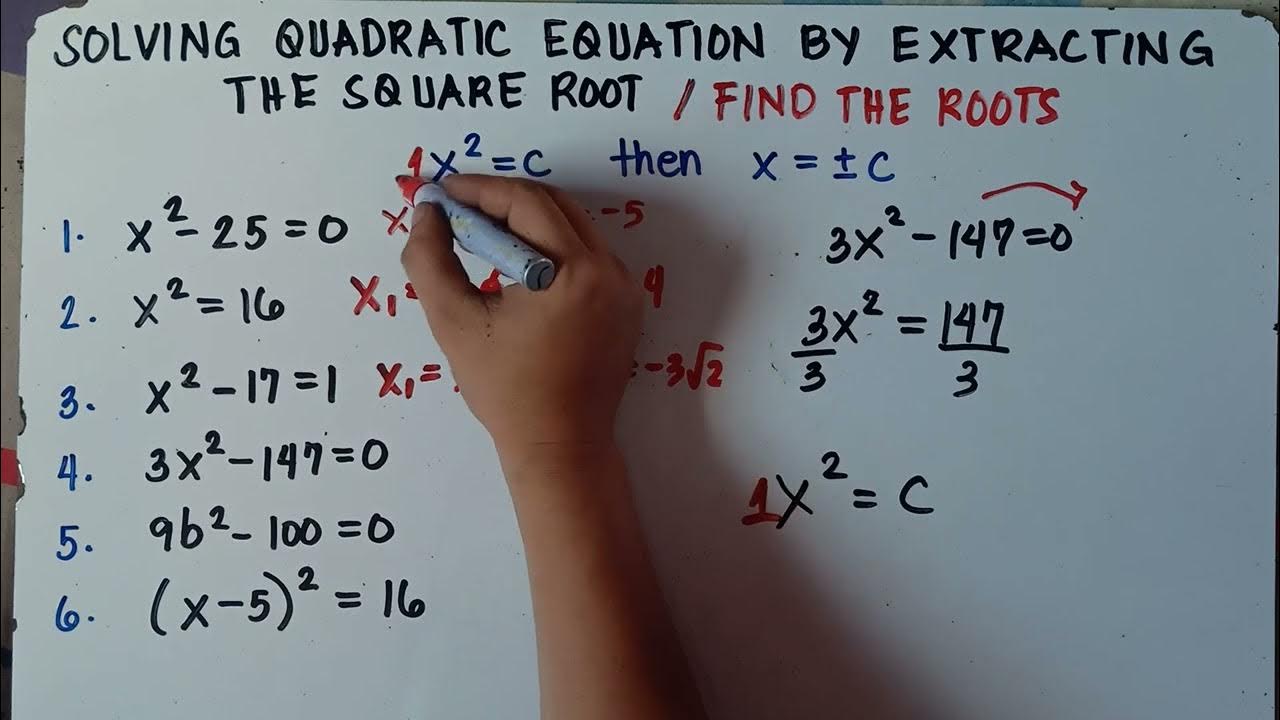 SOLVING QUADRATIC EQUATION BY EXTRACTING
THE SQUARE ROOT / FIND THE ROOTS
1x² = C then x = ± C
1. x² - 25 = 0 x -5
2. x² = 16 x₁ = 4
3. x² - 17 = 1 x₁ = = -3√2
4. 3x² - 147 = 0
5. 9b² - 100 = 0
6. (x - 5)² = 16
3x² - 147 = 0
3x² = 147
3 3
1x² = C